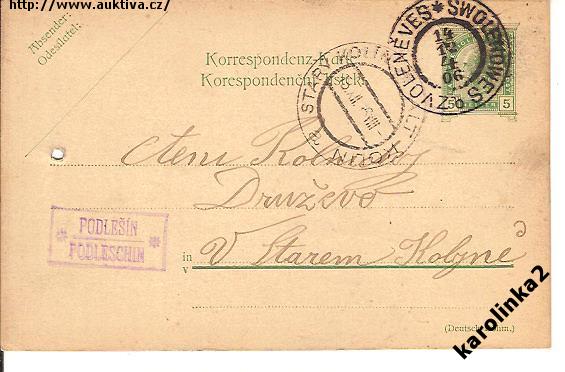 http://www.auktiva.cz/
Absender:
Odesílatel:
Korrespondenz-Karte
Korespondenční lístek
SWOLENOWES * ZVOLENĚVES *
14
12
06
5
5
STARÝ KOLÍN
Druževo
V Starem Kolyne
in
v
PODLEŠÍN
PODLESCHIN
(Deutsch-böhm.)
karolinka2